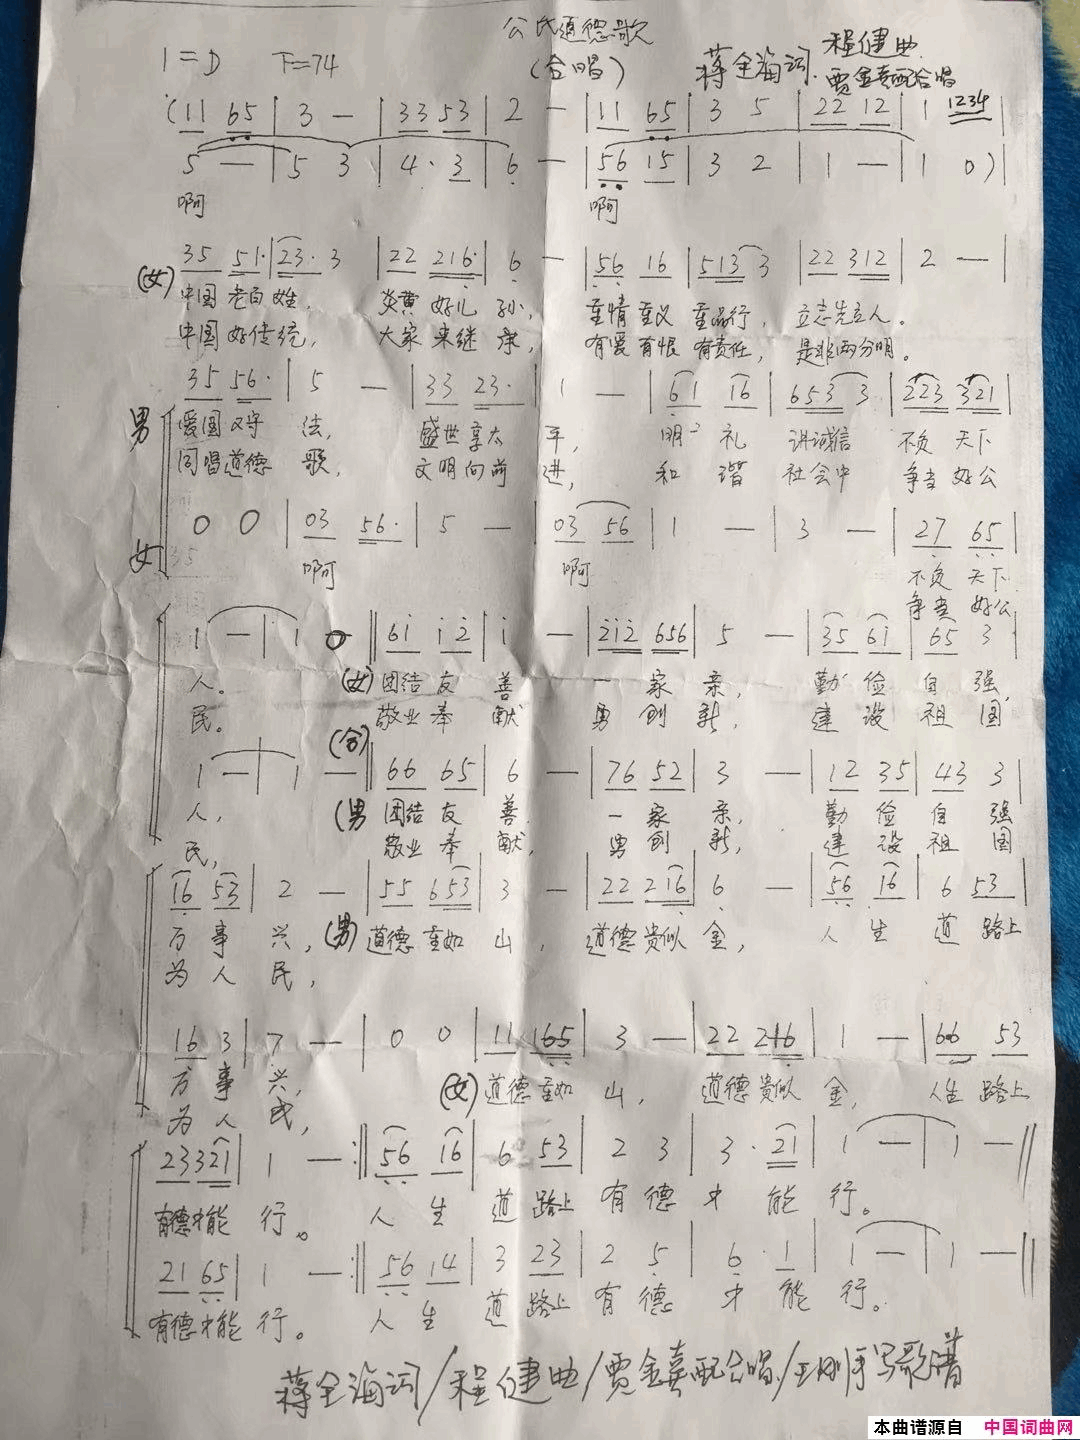 公民道德歌
(合唱)
1=D
♩=74
蒋全海词.
程健曲
贾金喜配合唱
(11 65 | 3 — | 33 53 | 2 — | 11 65 | 3 5 | 22 12 | 1 1234 |
5 — | 5 3 | 4· 3 | 6 — | 56 15 | 3 2 | 1 — | 1 0) |
啊 啊
35 51· | 23· 3 | 22 216· | 6 — | 56 16 | 513 3 | 22 312 | 2 — |
(女) 中国老百姓, 炎黄好儿孙, 重情重义 重品行, 立志先立人。
中国好传统, 大家来继承, 有爱有恨 有责任, 是非两分明。
35 56· | 5 — | 33 23· | 1 — | 61 16 | 653 3 | 223 321 |
男 爱国又守法, 盛世享太平, 明礼 讲诚信 不负天下
同唱道德歌, 文明向前进, 和谐社会中 争当好公
0 0 | 03 56· | 5 — | 03 56 | 1 — | 3 — | 27 65 |
女 啊 啊 不负天下
争当好公
1 — | 1 0 || 61 12 | 1 — | 212 656 | 5 — | 35 61 | 65 3 |
人。 (女) 团结友善 一家亲, 勤俭自强,
民。 敬业奉献 勇创新, 建设祖国
(合)
1 — | 1 — || 66 65 | 6 — | 76 52 | 3 — | 12 35 | 43 3 |
人, (男 团结友善 一家亲, 勤俭自强
民, 敬业奉献, 勇创新, 建设祖国
16 53 | 2 — | 55 653 | 3 — | 22 216 | 6 — | 56 16 | 6 53 |
万事兴, (男) 道德重如山, 道德贵似金, 人生道路上
为人民,
16 3 | 7 — | 0 0 | 11 165 | 3 — | 22 216 | 1 — | 66 53
万事兴, (女) 道德重如山, 道德贵似金, 人生路上
为人民,
23321 | 1 — :|| 56 16 | 6 53 | 2 3 | 3· 21 | 1 — | 1 — ||
有德才能行。 人生道路上有德才能行。
21 65 | 1 — :|| 56 14 | 3 23 | 2 5 | 6· 1 | 1 — | 1 — ||
有德才能行。 人生道路上有德才能行。
蒋全海词/程健曲/贾金喜配合唱/王刚手写歌谱
本曲谱源自 中国词曲网